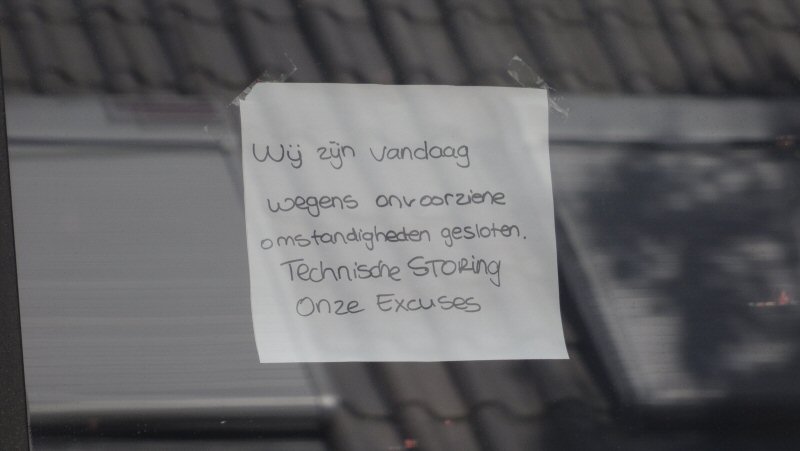 Wij zijn vandaag
wegens onvoorziene
omstandigheden gesloten.
Technische STORing
Onze Excuses